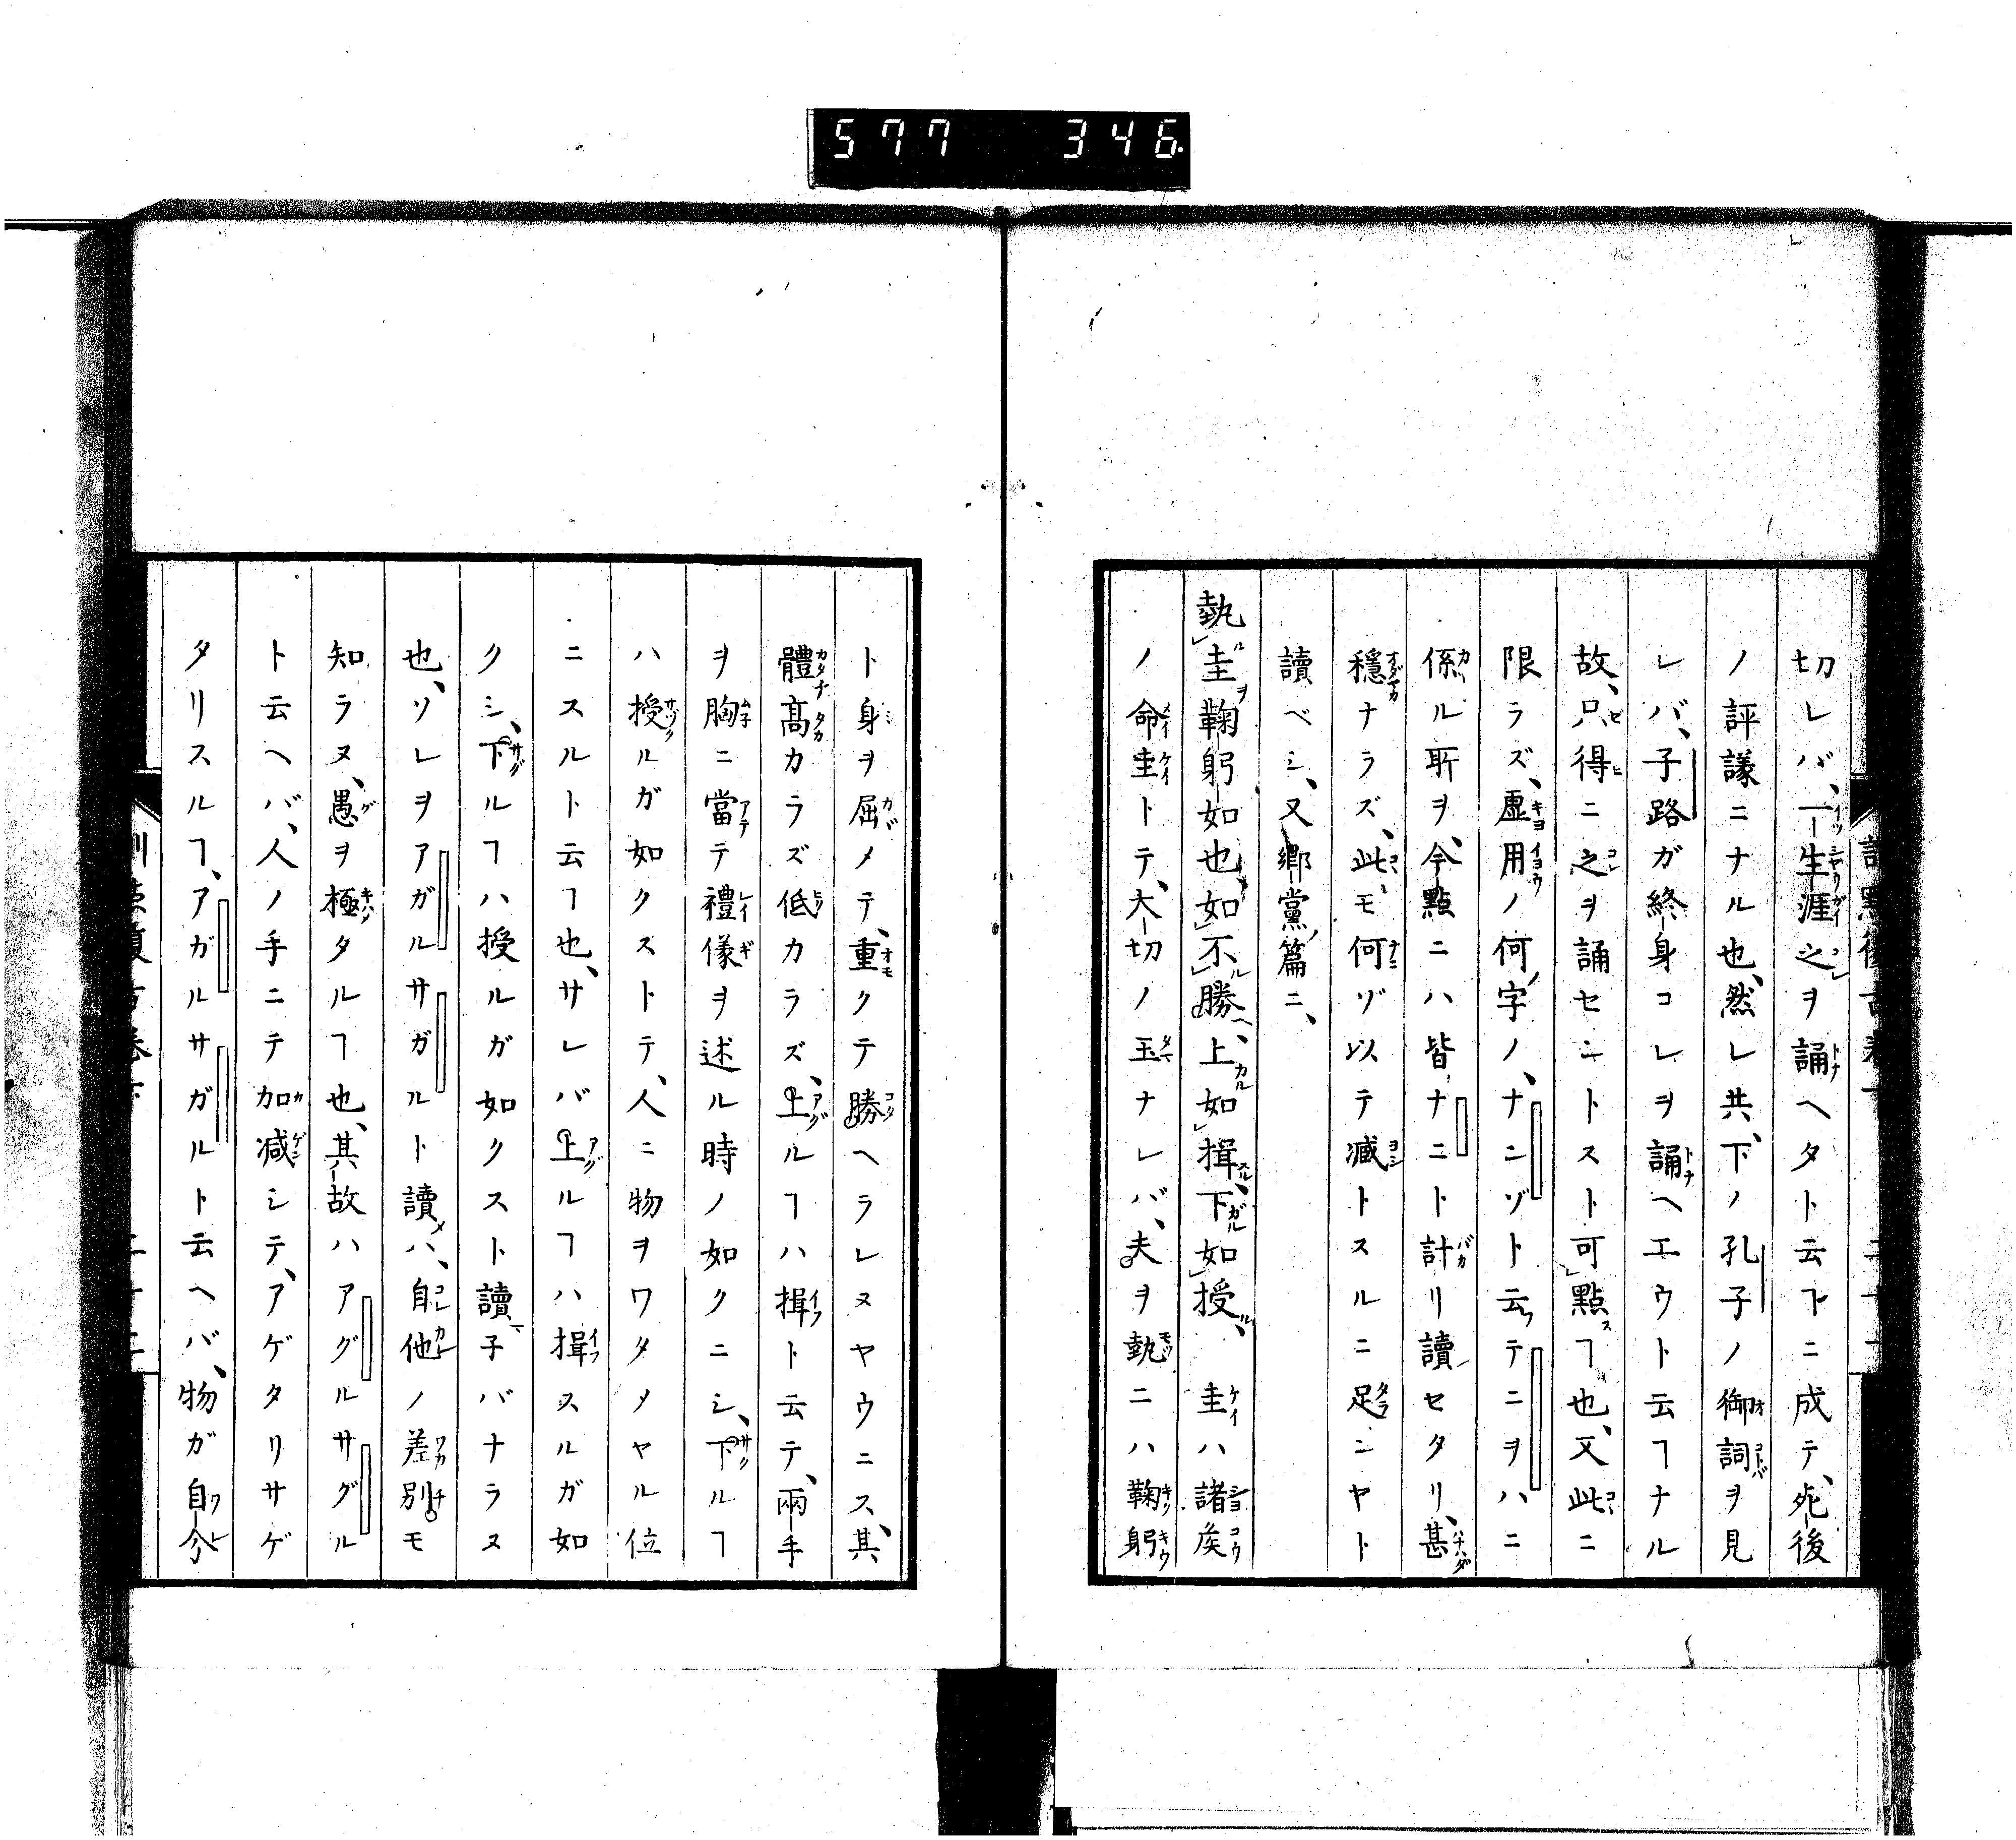 577 346
切レバ、一生涯之ヲ誦ヘタト云ヿニ成テ、死後
ノ評議ニナル也、然レ共、下ノ孔子ノ御詞ヲ見
レバ、子路ガ終身コレヲ誦ヘエウト云ヿナル
故、只得ニ之ヲ誦セントスト可點スヿ也、又此ニ
限ラズ、虚用ノ何ノ字ノ、ナンゾト云フテニヲハニ
係ル所ヲ、今點ニハ皆ナニト計リ讀セタリ、甚
穩ナラズ、此モ何ゾ以テ臧トスルニ足ンヤト
讀ベシ、又郷黨ノ篇ニ、
執ル圭ヲ鞠躬如也、如不ル勝ヘ、上カル如揖スル、下ガル如授ル、圭ハ諸矦
ノ命圭トテ、大切ノ玉ナレバ、夫ヲ執ニハ鞠躬
ト身ヲ屈メテ、重クテ勝ヘラレヌヤウニス、其
體高カラズ低カラズ、上ルヿハ揖ト云テ、兩手
ヲ胸ニ當テ禮儀ヲ述ル時ノ如クニシ、下ルヿ
ハ授ルガ如クストテ、人ニ物ヲワタメヤル位
ニスルト云ヿ也、サレバ上ルヿハ揖スルガ如
クシ、下ルヿハ授ルガ如クスト讀子バナラヌ
也、ソレヲアガルサガルト讀メハ、自他ノ差別モ
知ラヌ、愚ヲ極タルヿ也、其故ハアグルサグル
ト云ヘバ、人ノ手ニテ加減シテ、アゲタリサゲ
タリスルヿ、アガルサガルト云ヘバ、物ガ自分